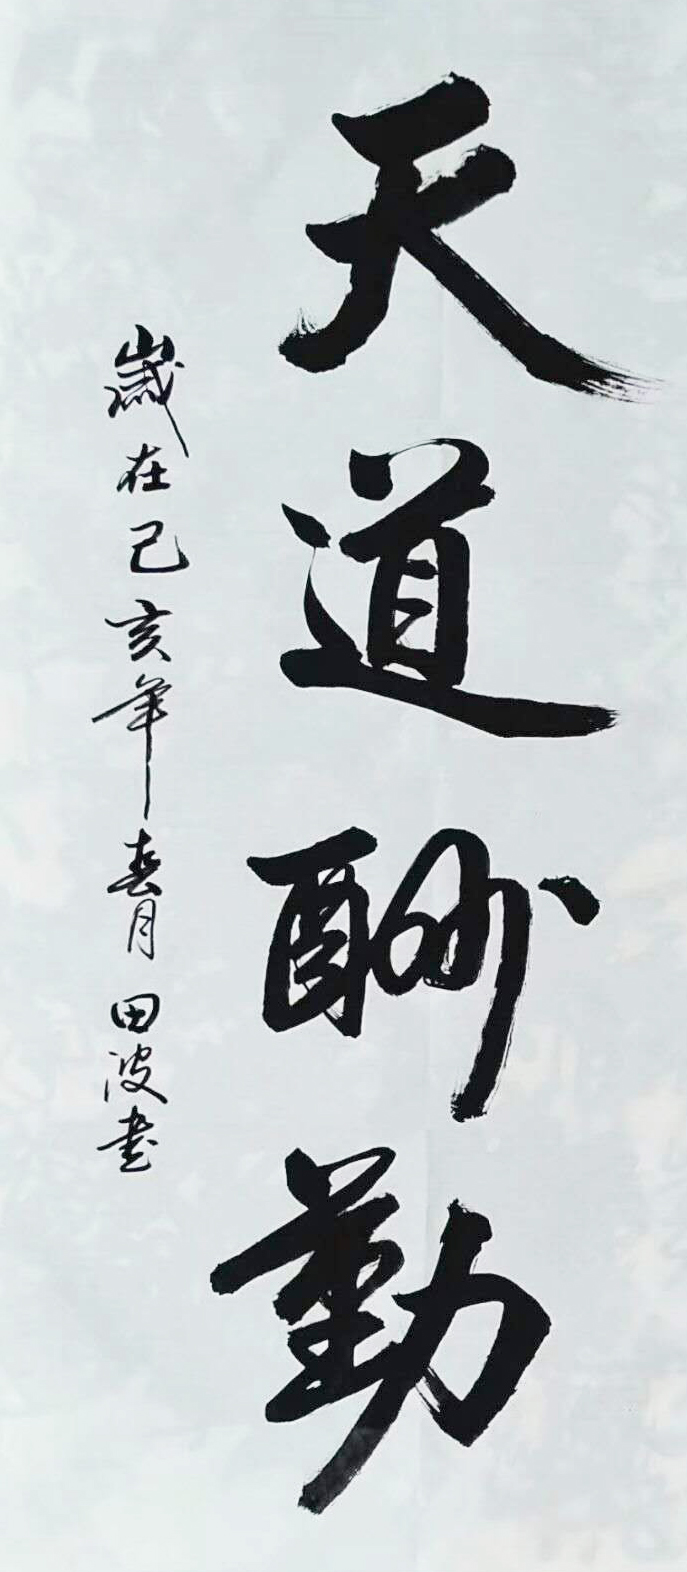 天道酬勤
歲在己亥年春月田波書